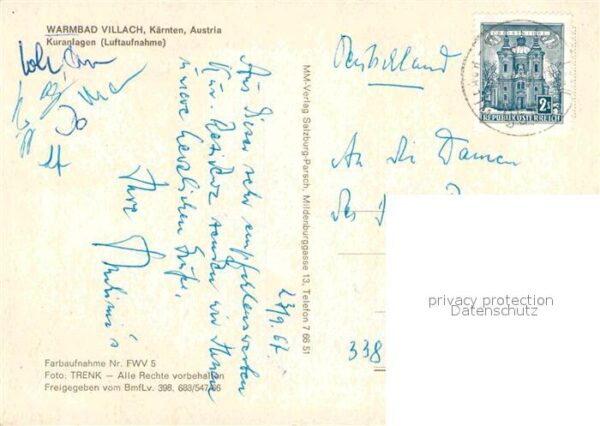 WARMBAD VILLACH, Kärnten, Austria
Kuranlagen (Luftaufnahme)
Aus dieser sehr empfehlenswerten
Kur. Residenz senden wir Ihnen
unsere herzlichen Grüße,
Ihre
23/9.67
MM-Verlag Salzburg-Parsch, Mildenburggasse 13, Telefon 7 66 51
Deutschland
2S
REPUBLIK ÖSTERREICH
An die Damen
338
privacy protection
Datenschutz
Farbaufnahme Nr. FWV 5
Foto: TRENK — Alle Rechte vorbehalten
Freigegeben vom BmfLv. 398. 683/547/66